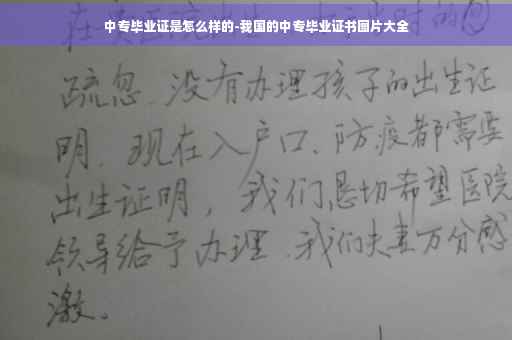 中专毕业证是怎么样的-我国的中专毕业证书图片大全
疏忽、没有办理孩子的出生证
明、现在入户口、防疫都需要
出生证明，我们恳切希望医院
领导给予办理、我们夫妻万分感
激。